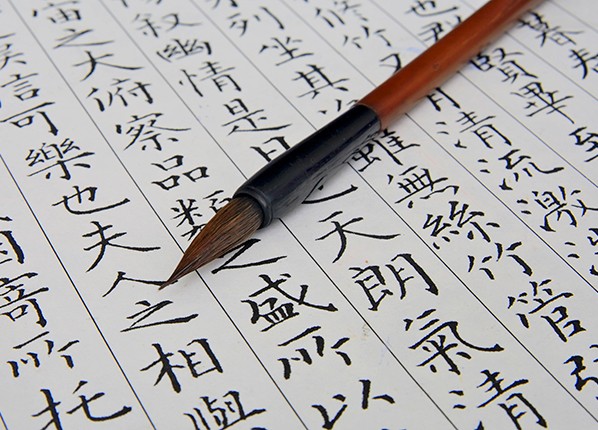 暮春
也群賢畢至
修竹又有清流激
列坐其次雖無絲竹管
敘幽情是日也天朗氣清
宙之大府察品類之盛所以
信可樂也夫人之相與
寄所托